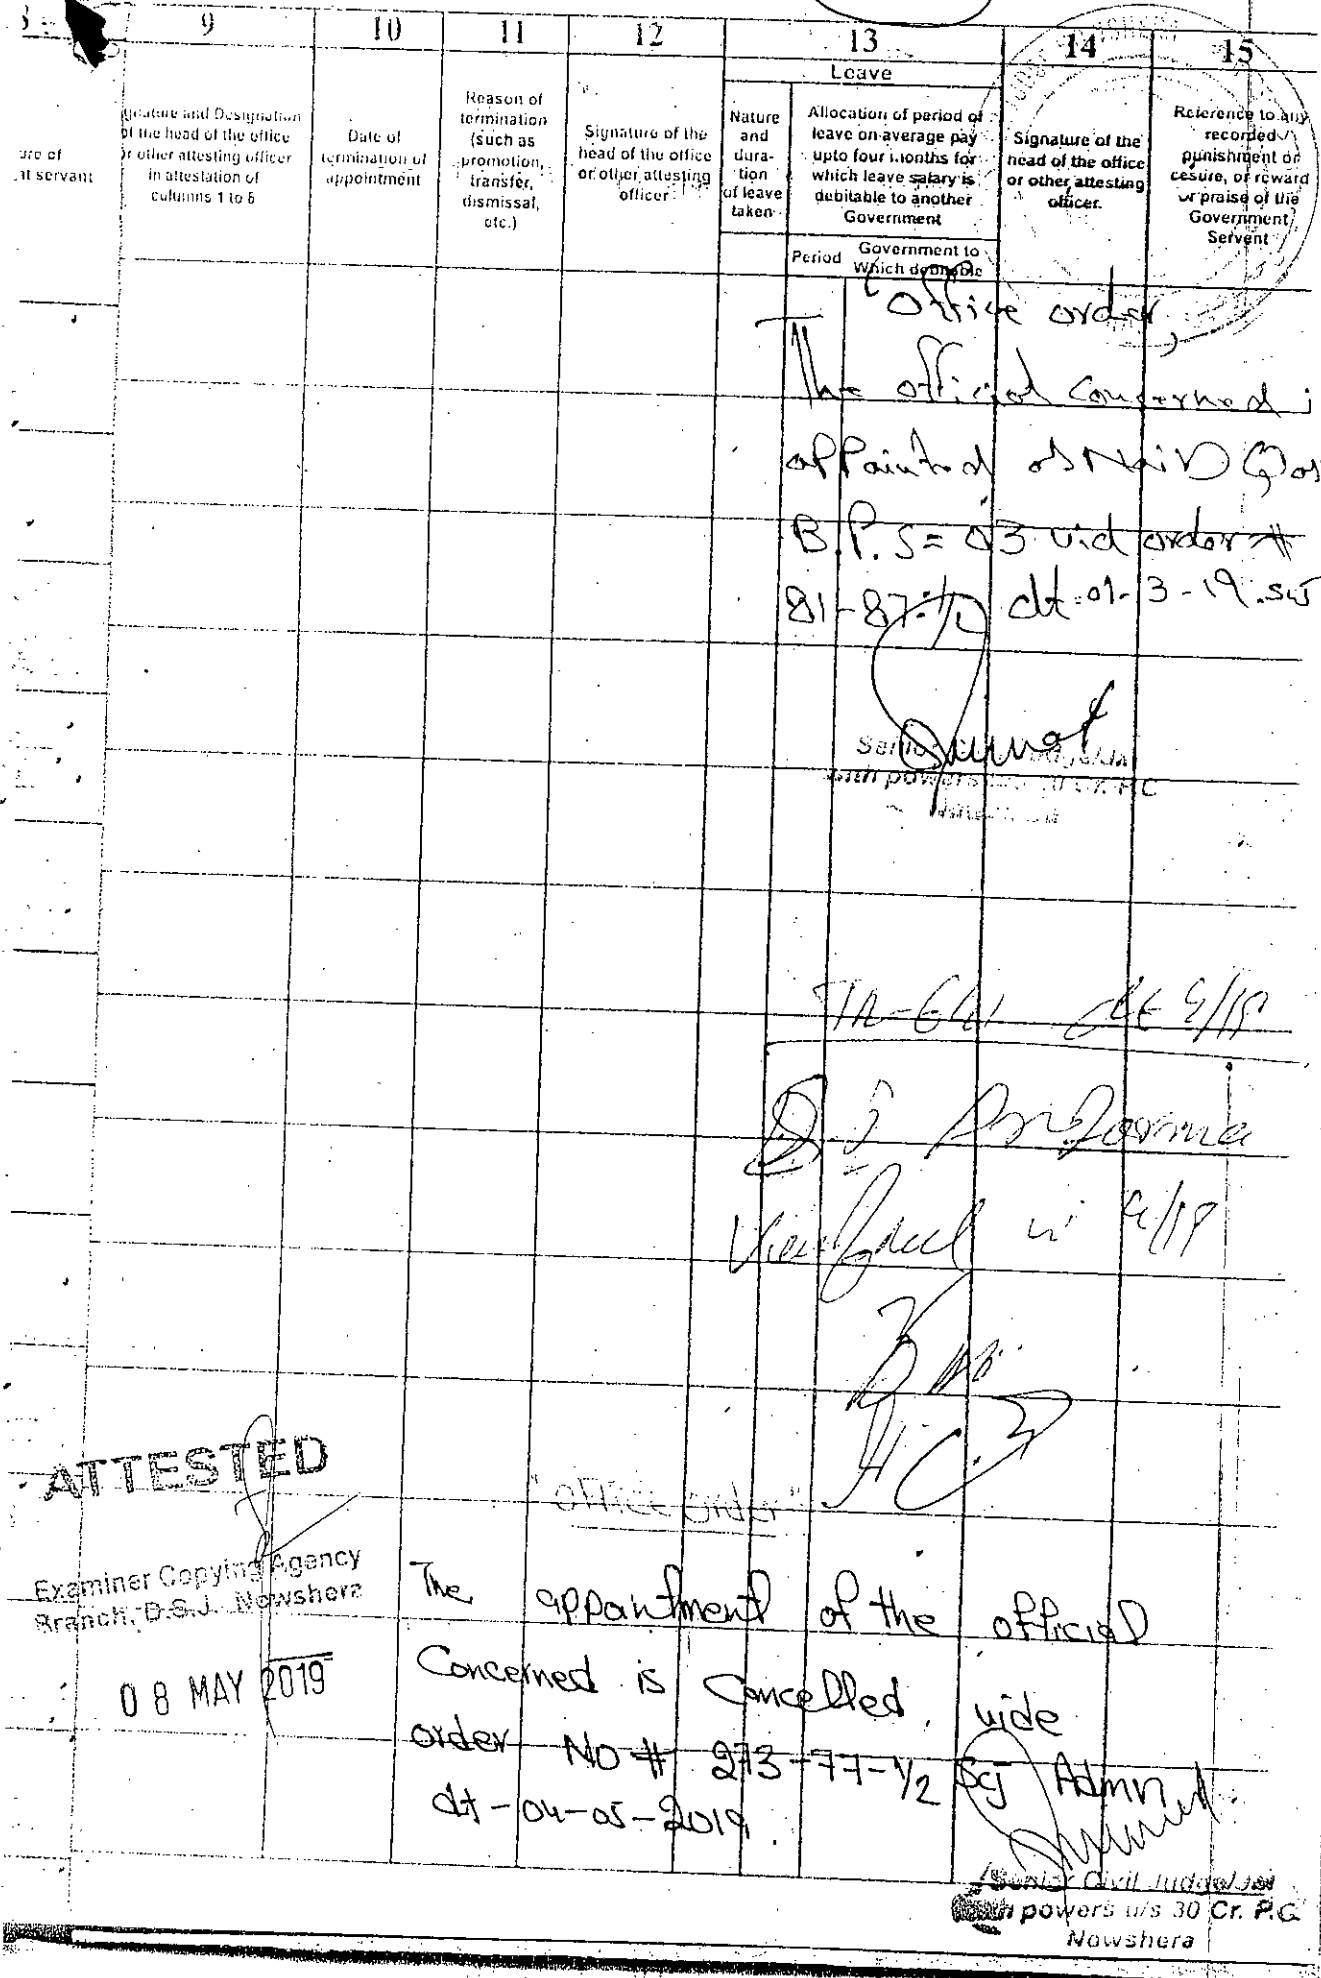 9 10 11 12 13 14 15
Leave
ure of
nt servant
gnature and Designation
of the head of the office
or other attesting officer
in attestation of
columns 1 to 8
Date of
termination of
appointment
Reason of
termination
(such as
promotion,
transfer,
dismissal,
etc.)
Signature of the
head of the office
or other attesting
officer
Nature
and
dura-
tion
of leave
taken
Allocation of period of
leave on average pay
upto four months for
which leave salary is
debitable to another
Government
Period
Government to
Which debitable
Signature of the
head of the office
or other attesting
officer.
Reference to any
recorded
punishment or
cesure, or reward
or praise of the
Government
Servent
"Office order,
The official Concerned i
appointed as Naib Qas
B.P.S= 03 vid order #
81-87/ dt 01-3-19
Senior
with powers
dt
Proforma
in
ATTESTED
Examiner Copying Agency
Branch, D.S.J. Nowshera
08 MAY 2019
"office order"
The appointment of the official
Concerned is Cancelled, vide
order No # 273-77-1/2 SCJ Admn
dt-04-05-2019.
Senior Civil Judge/
powers u/s 30 Cr. P.C
Nowshera